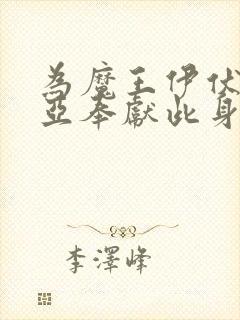 為魔王伊伏
亞奉獻此身
李澤峰